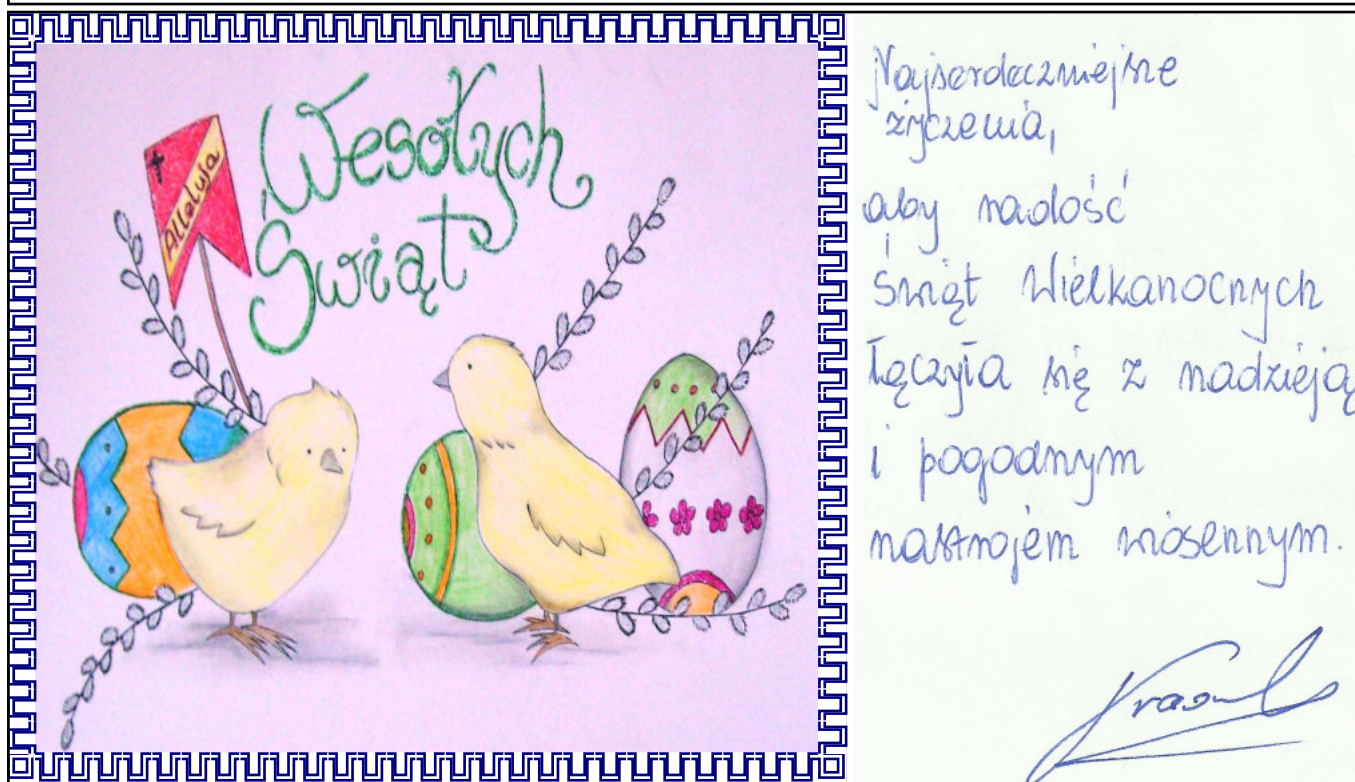 Alleluja
Wesołych
Świąt
Najserdeczniejsze
życzenia,
aby radość
Świąt Wielkanocnych
łączyła się z nadzieją
i pogodnym
nastrojem wiosennym.